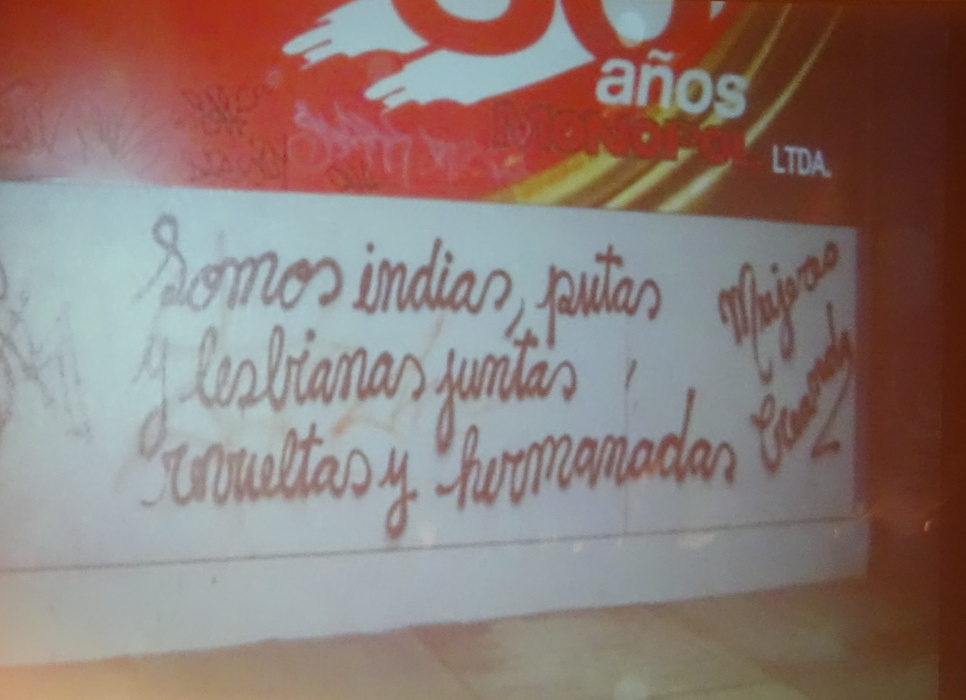 años
MONOPOL LTDA.
Somos indias, putas
y lesbianas juntas
revueltas y hermanadas
Mujeres
Creando